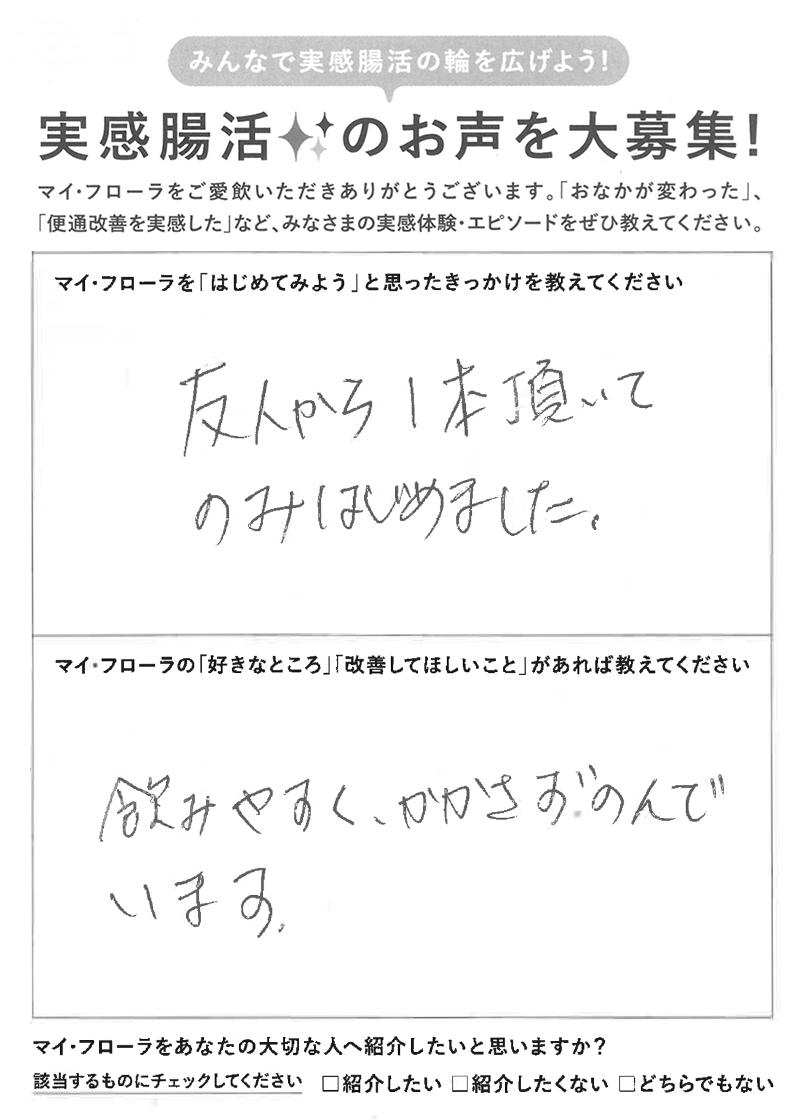 みんなで実感腸活の輪を広げよう!
実感腸活のお声を大募集!
マイ・フローラをご愛飲いただきありがとうございます。「おなかが変わった」、
「便通改善を実感した」など、みなさまの実感体験・エピソードをぜひ教えてください。
マイ・フローラを「はじめてみよう」と思ったきっかけを教えてください
友人から1本頂いて
のみはじめました。
マイ・フローラの「好きなところ」「改善してほしいこと」があれば教えてください
飲みやすく、かかさずのんで
います。
マイ・フローラをあなたの大切な人へ紹介したいと思いますか?
該当するものにチェックしてください □紹介したい □紹介したくない □どちらでもない